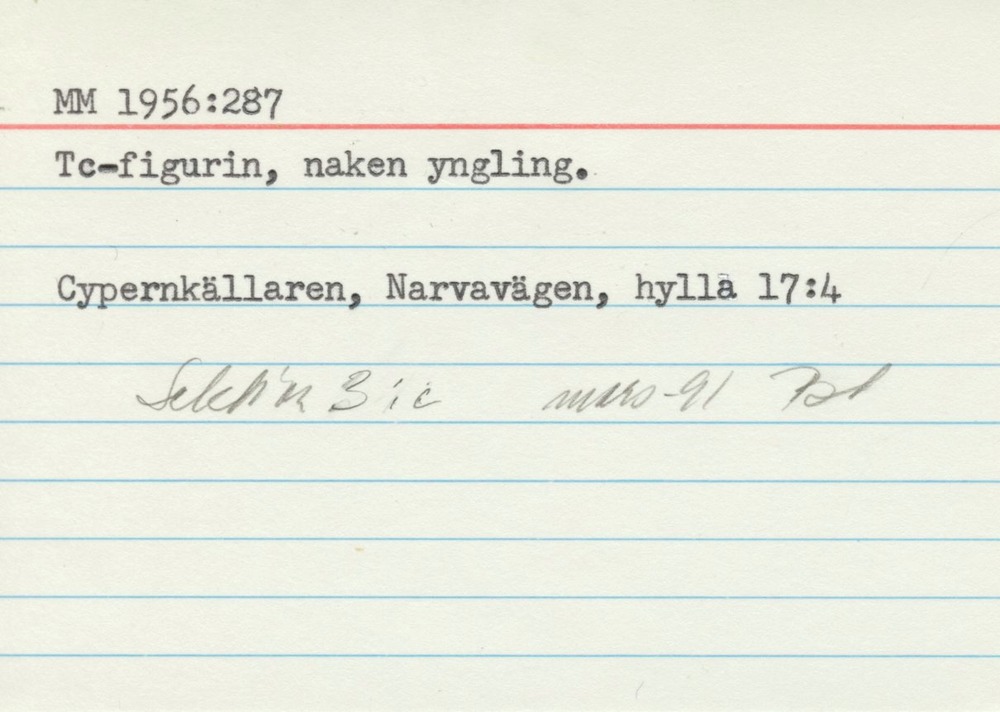 MM 1956:287
Tc-figurin, naken yngling.
Cypernkällaren, Narvavägen, hylla 17:4
Sektion 3:c mars-91